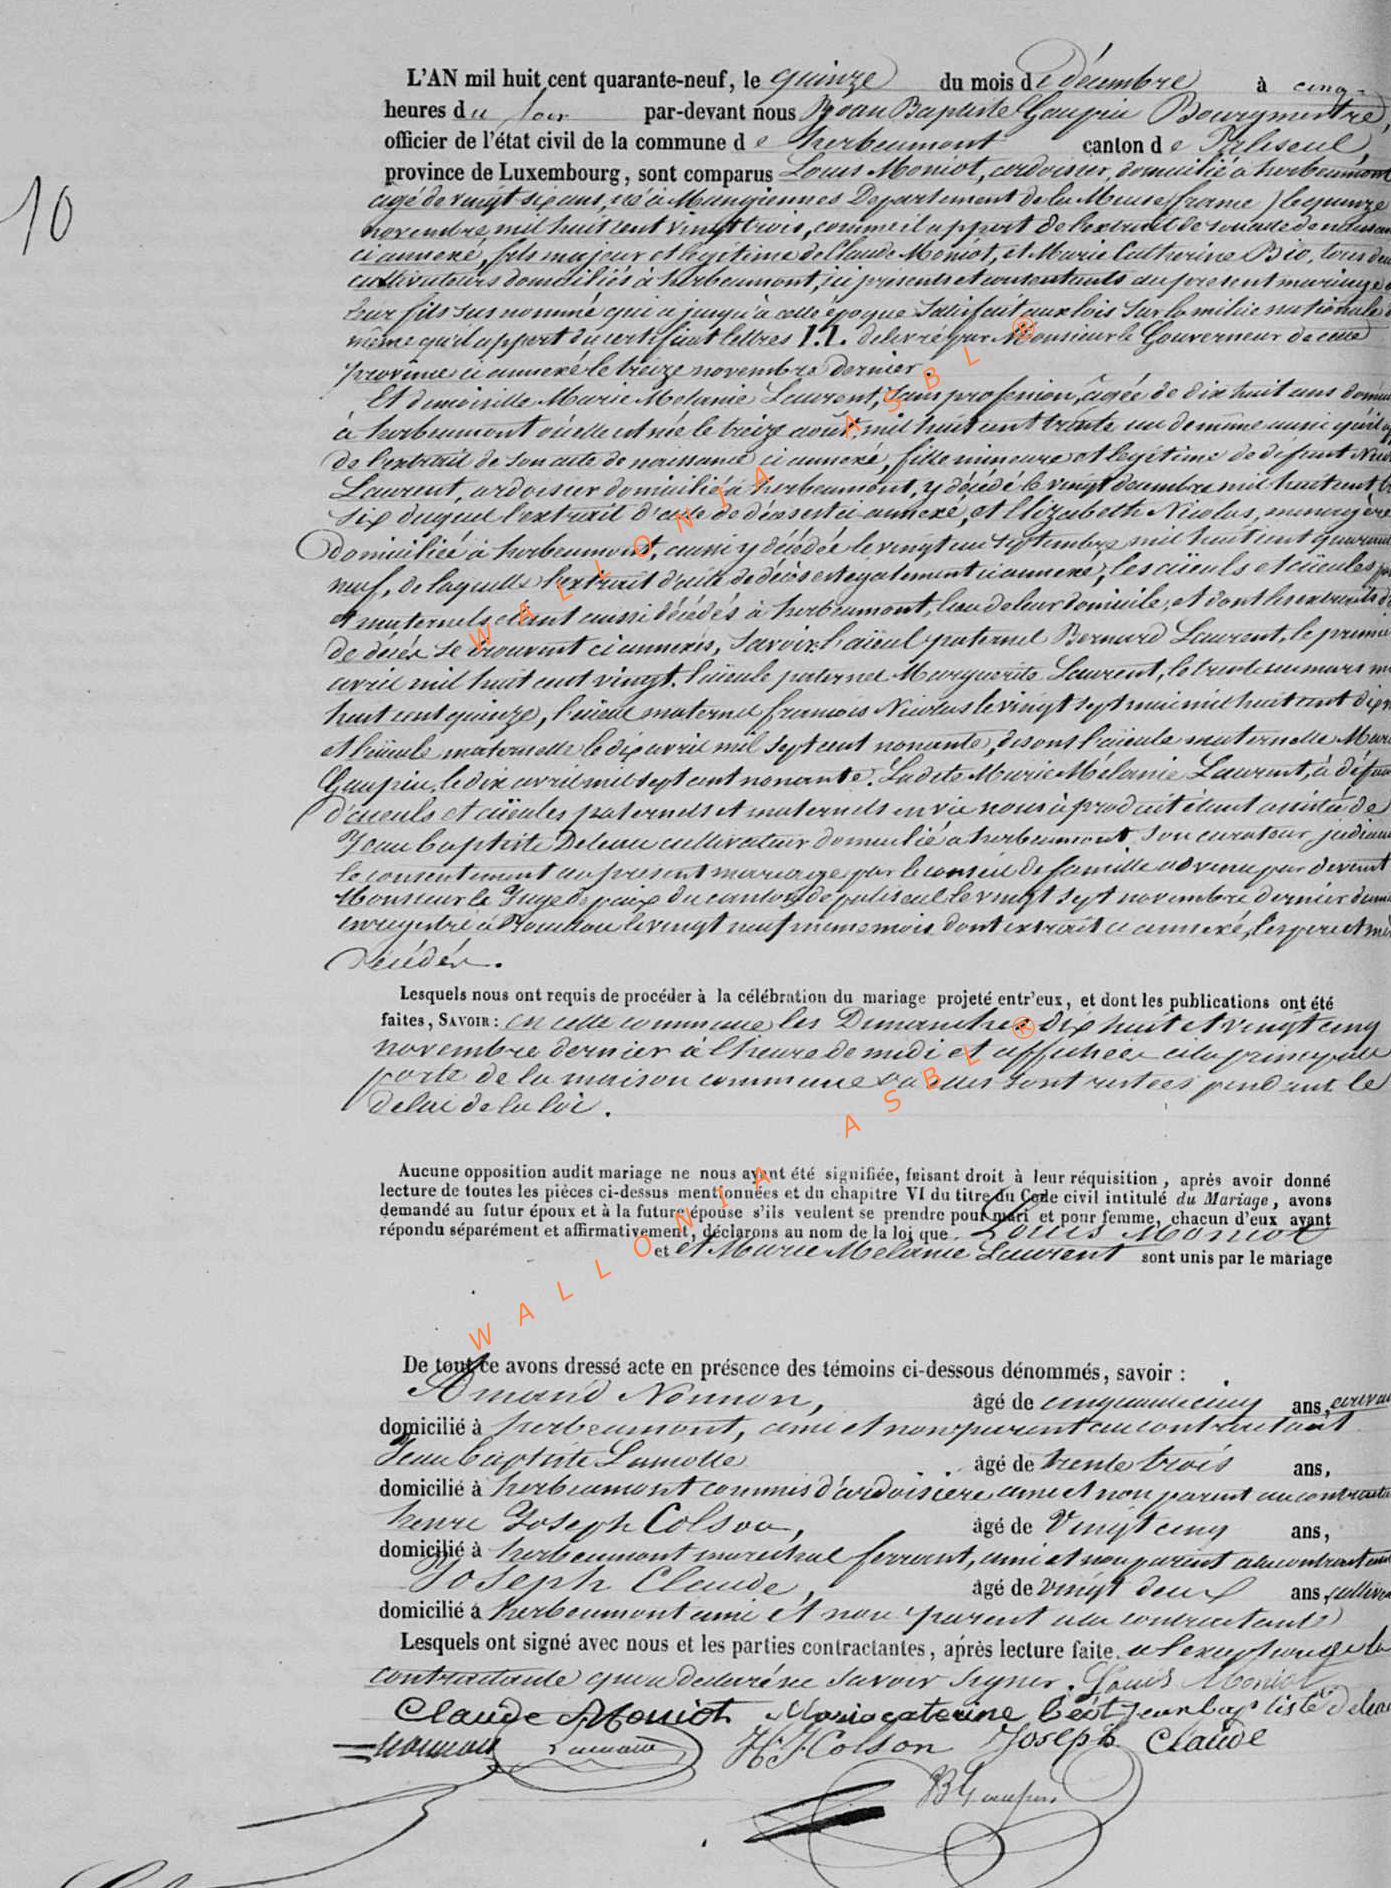 10
L'AN mil huit cent quarante-neuf, le quinze du mois de décembre à cinq
heures du soir par-devant nous Jean Baptiste Gaupin Bourgmestre,
officier de l'état civil de la commune de herbeumont canton de Paliseul,
province de Luxembourg, sont comparus Louis Moniot, ardoisier, domicilié à herbeumont
agé de vingt six ans, né à Mangiennes Departement de la Meuse (france) le quinze
novembre mil huit cent vingt trois, comme il appert de l'extrait de son acte de naissan
ci annexé, fils majeur et légitime de Claude Moniot, et Marie Catherine Béo, tous deux
cultivateurs domiciliés à herbeumont, ici présents et consentants au present mariage
leur fils sus nommé qui a jusqu'à cette époque satisfait aux lois sur la milice nationale
même qu'il appert du certificat lettres I.I. delivré par Monsieur le Gouverneur de cette
province ci annexé le treize novembre dernier.
Et demoiselle Marie Melanie Laurent, sans profession, agée de dix huit ans domici
à herbeumont où elle est née le treize août mil huit cent trente un de même aussi qu'il
de l'extrait de son acte de naissance ci annexé, fille mineure et légitime de défunt Nico
Laurent, ardoisier domicilié à herbeumont, y décédé le vingt decembre mil huit cent
six duquel l'extrait d'acte de décès est ci annexé, et Elizabeth Nicolas, menagère
domiciliée à herbeumont, aussi y décédée le vingt un septembre mil huit cent quarante
neuf, de laquelle l'extrait d'acte de décès est egalement ci annexé, les aïeuls et aïeules
et maternels étant aussi décédés à herbeumont, lieu de leur domicile, et dont les extraits
de décès se trouvent ci annexés, savoir l'aïeul paternel Bernard Laurent, le premier
avril mil huit cent vingt, l'aïeule paternel Marguerite Laurent, le trente un mars mil
huit cent quinze, l'aïeul maternel francois Nicolas le vingt sept mai mil huit cent dix
et l'aïeule maternelle le dix avril mil sept cent nonante, disons l'aïeule maternelle Marie
Gaupin, le dix avril mil sept cent nonante. Ladite Marie Mélanie Laurent, à défaut
d'aïeuls et aïeules paternels et maternels en vie nous a produit étant assistée de
Jean baptiste Deleau cultivateur domicilié à herbeumont son curateur judiciaire
le consentement au présent mariage par le conseil de famille advenu par devant
Monsieur le Juge de paix du canton de paliseul le vingt sept novembre dernier dument
enregistré à Bouillon le vingt neuf même mois dont extrait ci annexé, les pere et mère
décédés.
Lesquels nous ont requis de procéder à la célébration du mariage projeté entr'eux, et dont les publications ont été
faites, SAVOIR: en cette commune les Dimanches dix huit et vingt cinq
novembre dernier à l'heure de midi et affichées à la principale
porte de la maison commune où elles sont restées pendant le
delai de la loi.
Aucune opposition audit mariage ne nous ayant été signifiée, faisant droit à leur réquisition, après avoir donné
lecture de toutes les pièces ci-dessus mentionnées et du chapitre VI du titre du Code civil intitulé du Mariage, avons
demandé au futur époux et à la future épouse s'ils veulent se prendre pour mari et pour femme, chacun d'eux ayant
répondu séparément et affirmativement, déclarons au nom de la loi que Louis Moniot
et et Marie Melanie Laurent sont unis par le mariage
De tout ce avons dressé acte en présence des témoins ci-dessous dénommés, savoir :
Amand Nonnon, âgé de cinquante cinq ans,
domicilié à herbeumont, ami et non parent au contractant
Jean baptiste Lamotte âgé de trente trois ans,
domicilié à herbeumont commis d'ardoisière ami et non parent au contractant
henri Joseph Colson, âgé de Vingt cinq ans,
domicilié à herbeumont maréchal ferrant, ami et non parent à la contractante
Joseph Claude, âgé de vingt deux ans, cultiva
domicilié à herbeumont ami et non parent à la contractante
Lesquels ont signé avec nous et les parties contractantes, après lecture faite, à l'exception de la
contractante qui a declaré ne savoir signer. Louis Moniot
Claude Moniot Maria caterine béot Jean bap tiste deleau
Nonnon Lamotte H. J. Colson Joseph Claude
JB Gaupin
WALLONIA ASBL ®
WALLONIA ASBL ®